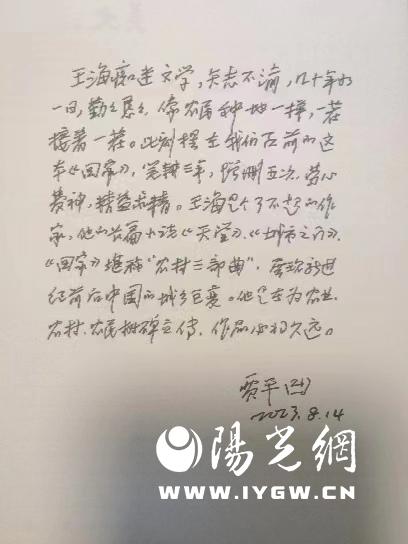 王海痴迷文学，矢志不渝，几十年如
一日，勤勤恳恳，像农民种地一样，一茬
接着一茬。此刻摆在我们面前的这
本《回家》，笔耕三年，增删五次，劳心
费神，精益求精。王海是个了不起的作
家，他的长篇小说《天堂》、《城市之门》、
《回家》堪称“农村三部曲”，展现新世
纪前后中国的城乡巨变。他是在为农业、
农村、农民树碑立传，作品必将久远。
贾平凹
2023.8.14
陽光網
WWW.IYGW.CN